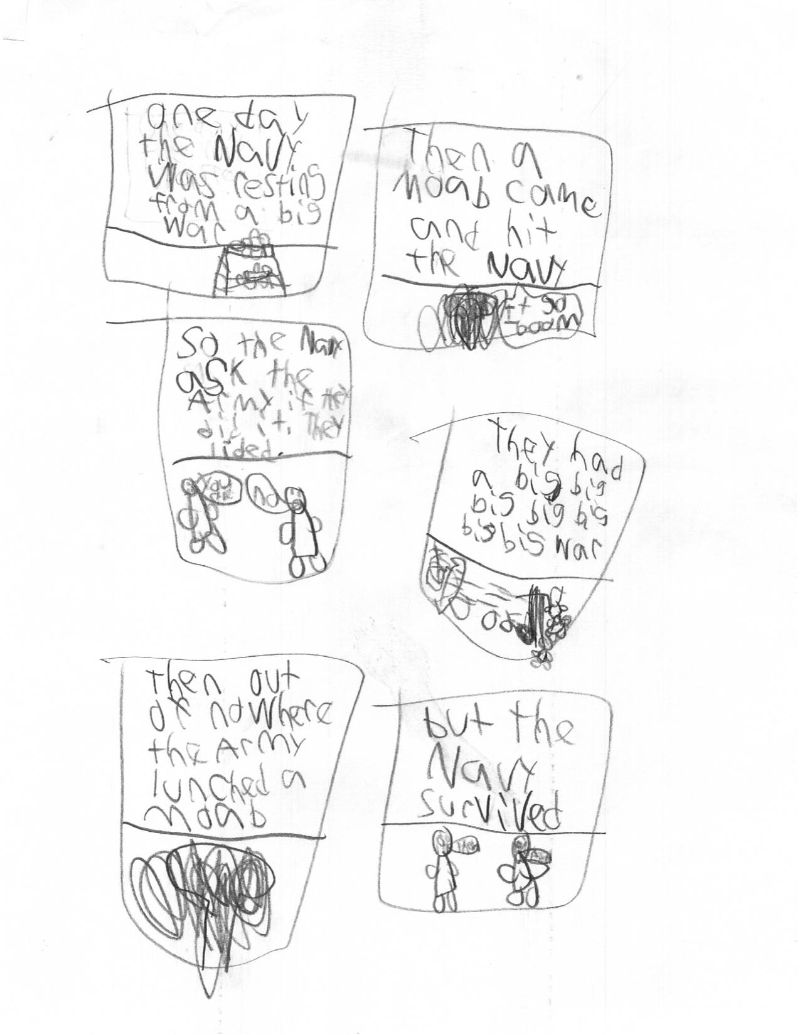 one day
the Navy
was resting
from a big
war
Then a
Moab came
and hit
the Navy
It go
boom
So the Navy
ask the
Army if they
did it. They
lided.
You
did
no
They had
a big big
big big big
big big war
then out
of nowhere
the Army
lunched a
moab
but the
Navy
survived